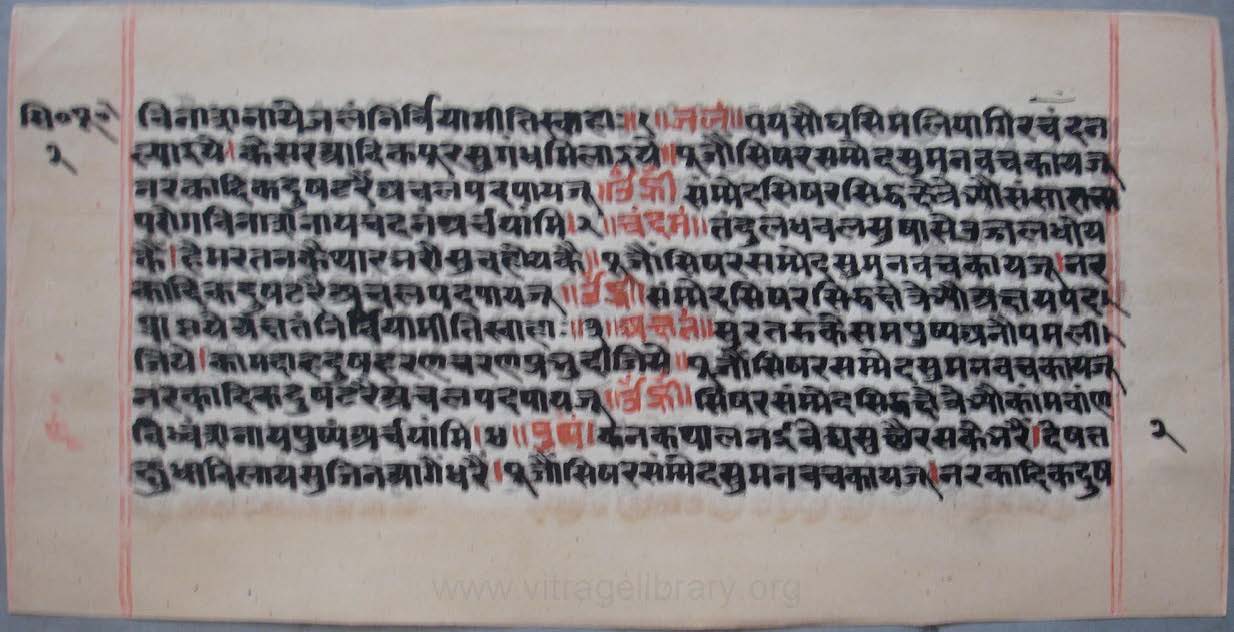 सि०पू०
२
विनाशनायेजलंनिर्विपामीतिस्वाहा॥१॥जलं॥पयसौघसिमलियागिरचंदन
ल्याइये।केसरआदिकपूरसुगंधमिलाइये॥पूजौंसिषरसम्मेदसुमनवचकायजू
नरकादिकदुषटरैंअचलपदपायजू॥ॐह्रीं संम्मेदसिषरसिद्धक्षेत्रेभ्यौसंसाराता
परोगविनाशनायचदनंअर्चयांमि।२॥चंदनं॥तंदुलधवलसुषासेउजलधोय
कैं।हेमरतनकैथारभरौसुचहोयकै॥पूजौंसिषरसम्मेदसुमनवचकायजू।नर
कादिकदुषटरैअचलपदपायजू॥ॐह्रीं संम्मेदसिषरसिद्धक्षेत्रेभ्यौअक्षयपद
प्राप्तये निर्विपामीतिस्वाहा॥३॥अक्षतं॥सुरतरुकैसमपुष्पअनोपमली
जिये।कामदाहदुषहरणचरणप्रभुदीजिये॥पूजौंसिषरसम्मेदसुमनवचकायजू
नरकादिकदुषटरैअचलपदपायजू॥ॐह्रीं॥सिषरसंम्मेदसिद्धक्षेत्रेभ्यौकांमवांण
विध्वंशनायपुष्पंअर्चयांमि।४॥पुष्पं।कनकथालनईवेद्यसु भरैं।देषत
क्षुधाविलायसुजिनआगैधरै।पूजौंसिषरसंम्मेदसुमनवचकायजू।नरकादिकदुष
२
www.vitragelibrary.org